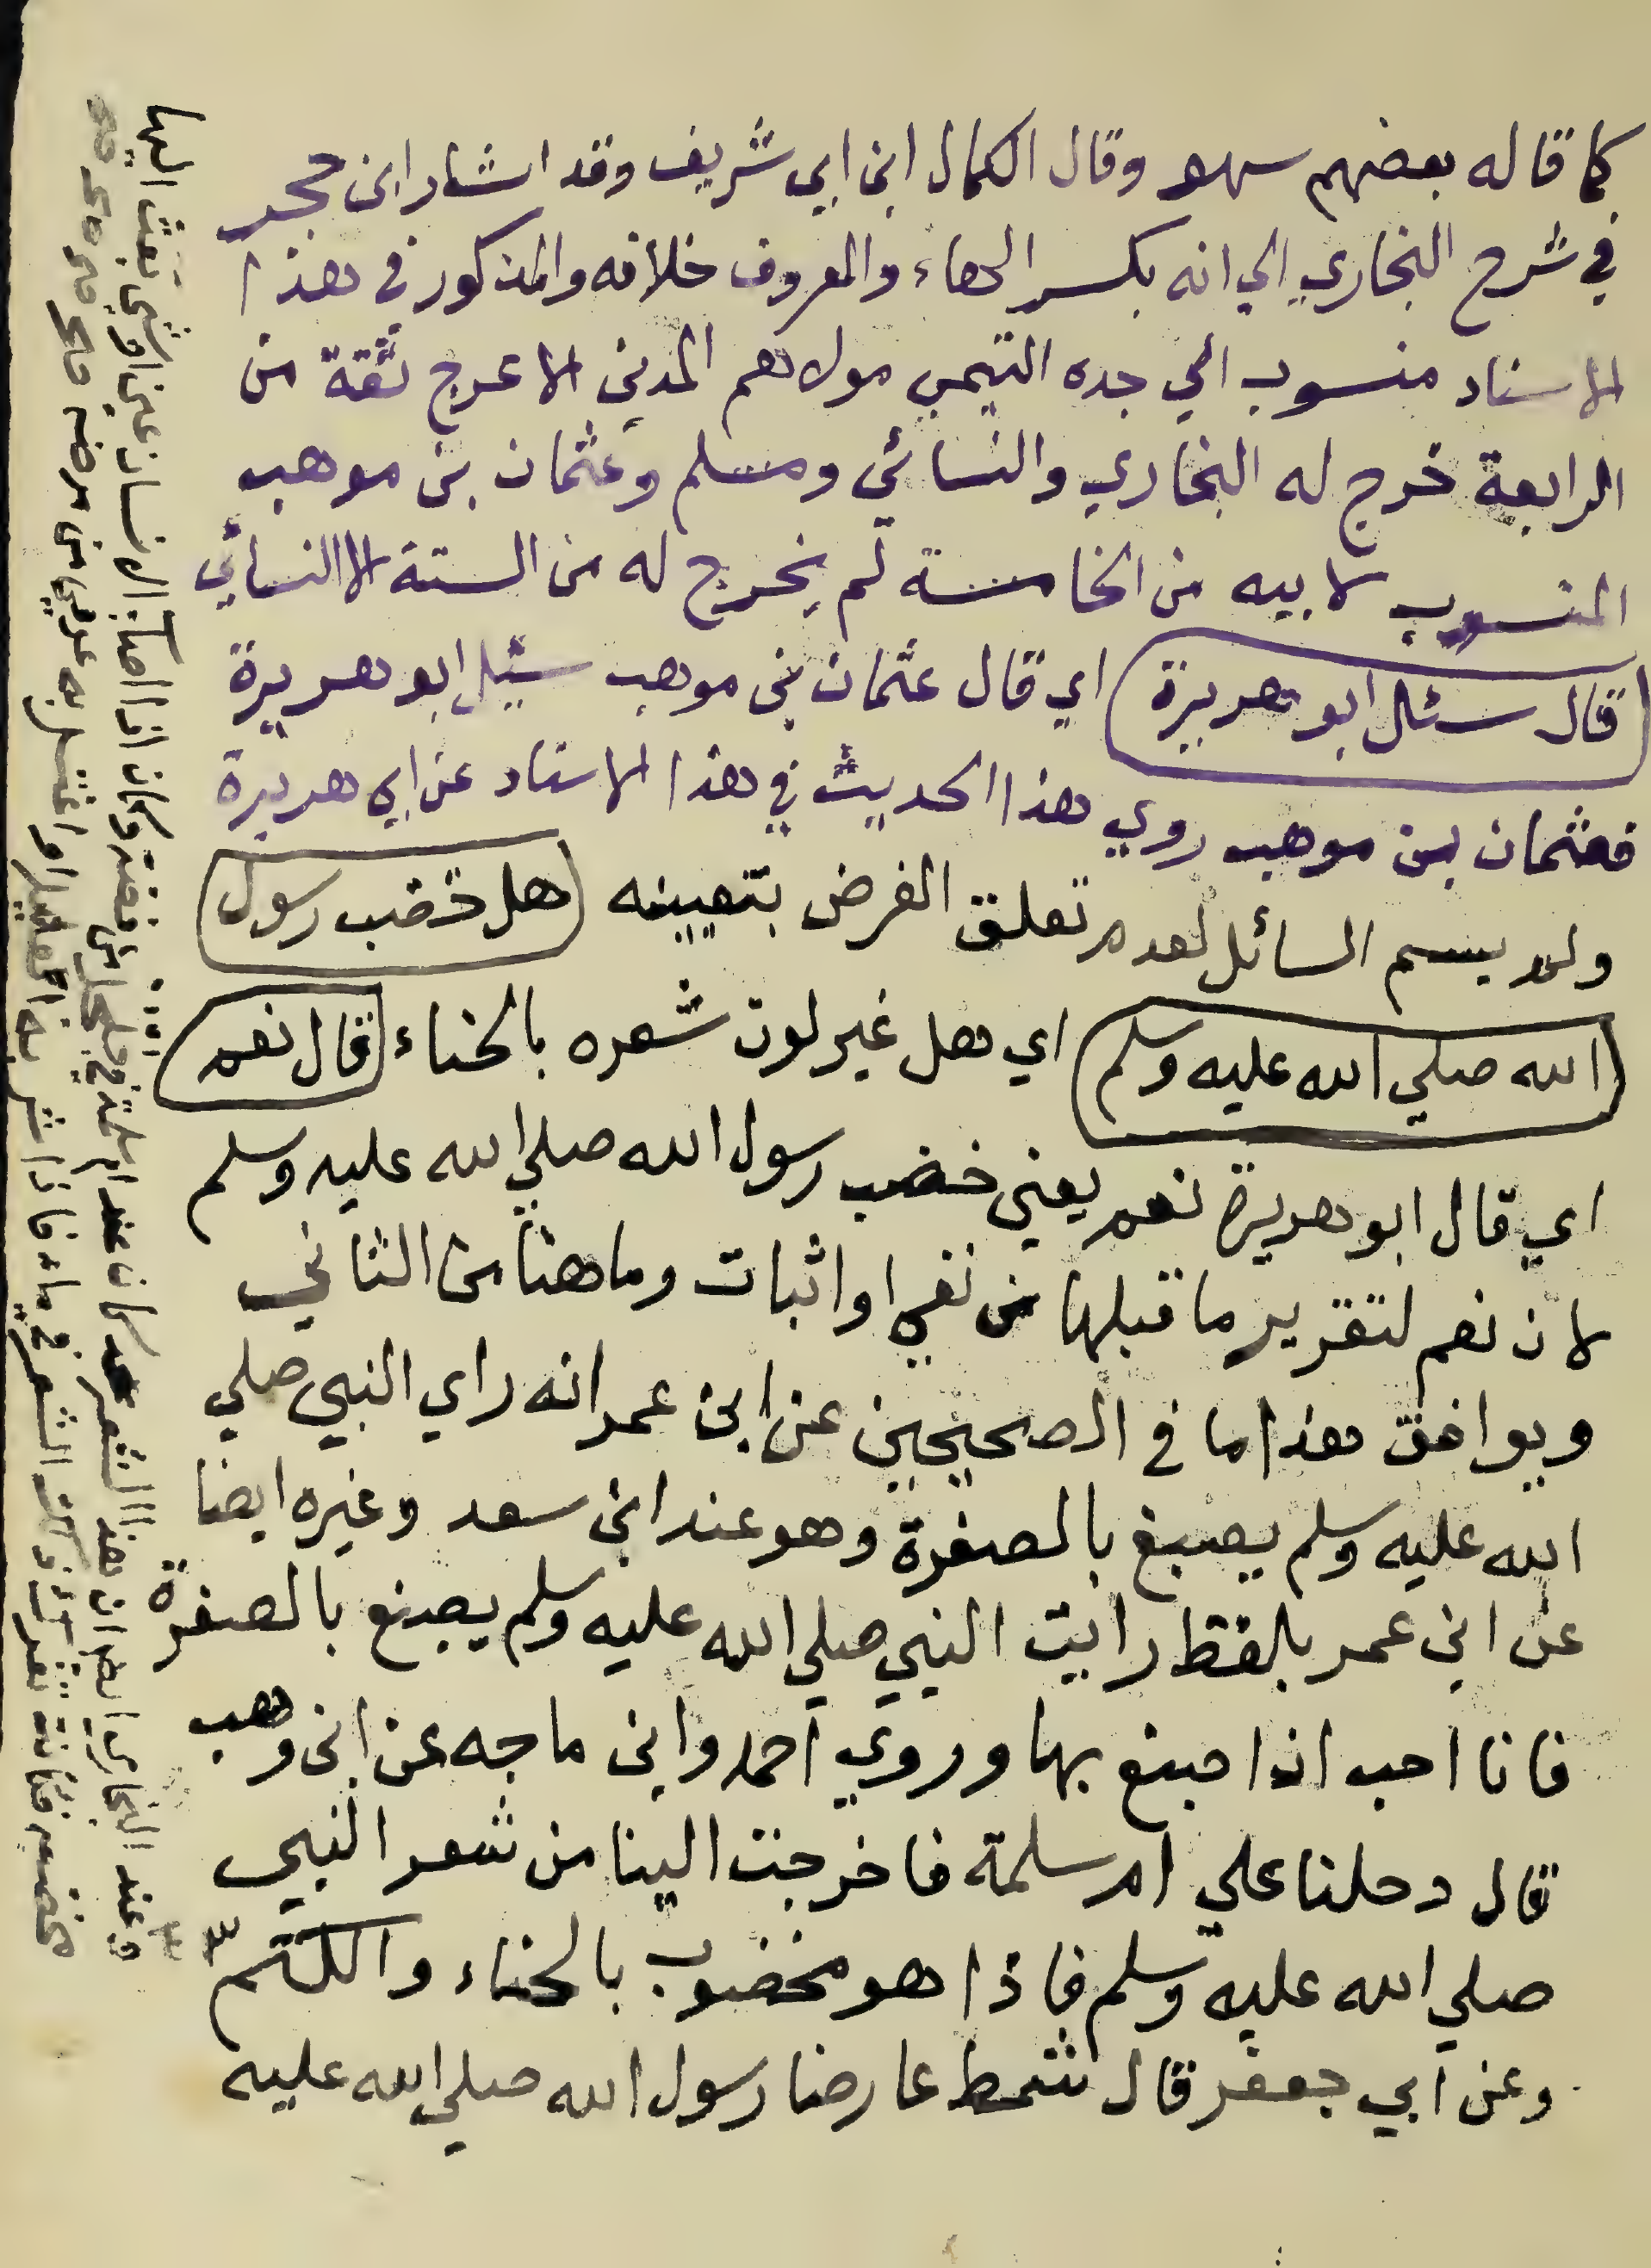 كما قاله بعضهم سهو وقال الكمال ابن ابي شريف وقد اشار ابن حجر
في شرح البخاري الي انه بكسر الهاء والمعروف خلافه والمذكور في هذا
الاسناد منسوب الي جده التيمي مولاهم المدني الاعرج ثقة من
الرابعة خرج له البخاري والنسائي ومسلم وعثمان بن موهب
المنسوب لابيه من الخامسة لم يخرج له من الستة الا النسائي
قال سئل ابو هريرة اي قال عثمان بن موهب سئيل ابو هريرة
فعثمان بن موهب روي هذا الحديث في هذا الاسناد عن ابي هريرة
ولم يسم السائل لعدم تعلق الغرض بتعيينه هل خضب رسول
الله صلي الله عليه وسلم اي هل غير لون شعره بالحناء قال نعم
اي قال ابو هريرة نعم يعني خضب رسول الله صلي الله عليه وسلم
لان نعم لتقرير ما قبلها من نفي او اثبات وما هنا من الثاني
ويوافق هذا ما في الصحيحين عن ابن عمر انه راي النبي صلي
الله عليه وسلم يصبغ بالصفرة وهو عند ابن سعد وغيره ايضا
عن ابن عمر بلفظ رايت النبي صلي الله عليه وسلم يصبغ بالصفرة
فانا احب ان اصبغ بها وروي احمد وابن ماجه عن ابن وهب
قال دحلنا علي ام سلمة فاخرجت الينا من شعر النبي
صلي الله عليه وسلم فاذا هو مخضوب بالحناء والكتم
وعن ابي جعفر قال شمط عارضا رسول الله صلي الله عليه
وعند البخاري ايضا ان هذا الشعر كان عند ام سلمة في جلجل من فضة وكان اذا اصاب الانسان عين او شي بعث اليها